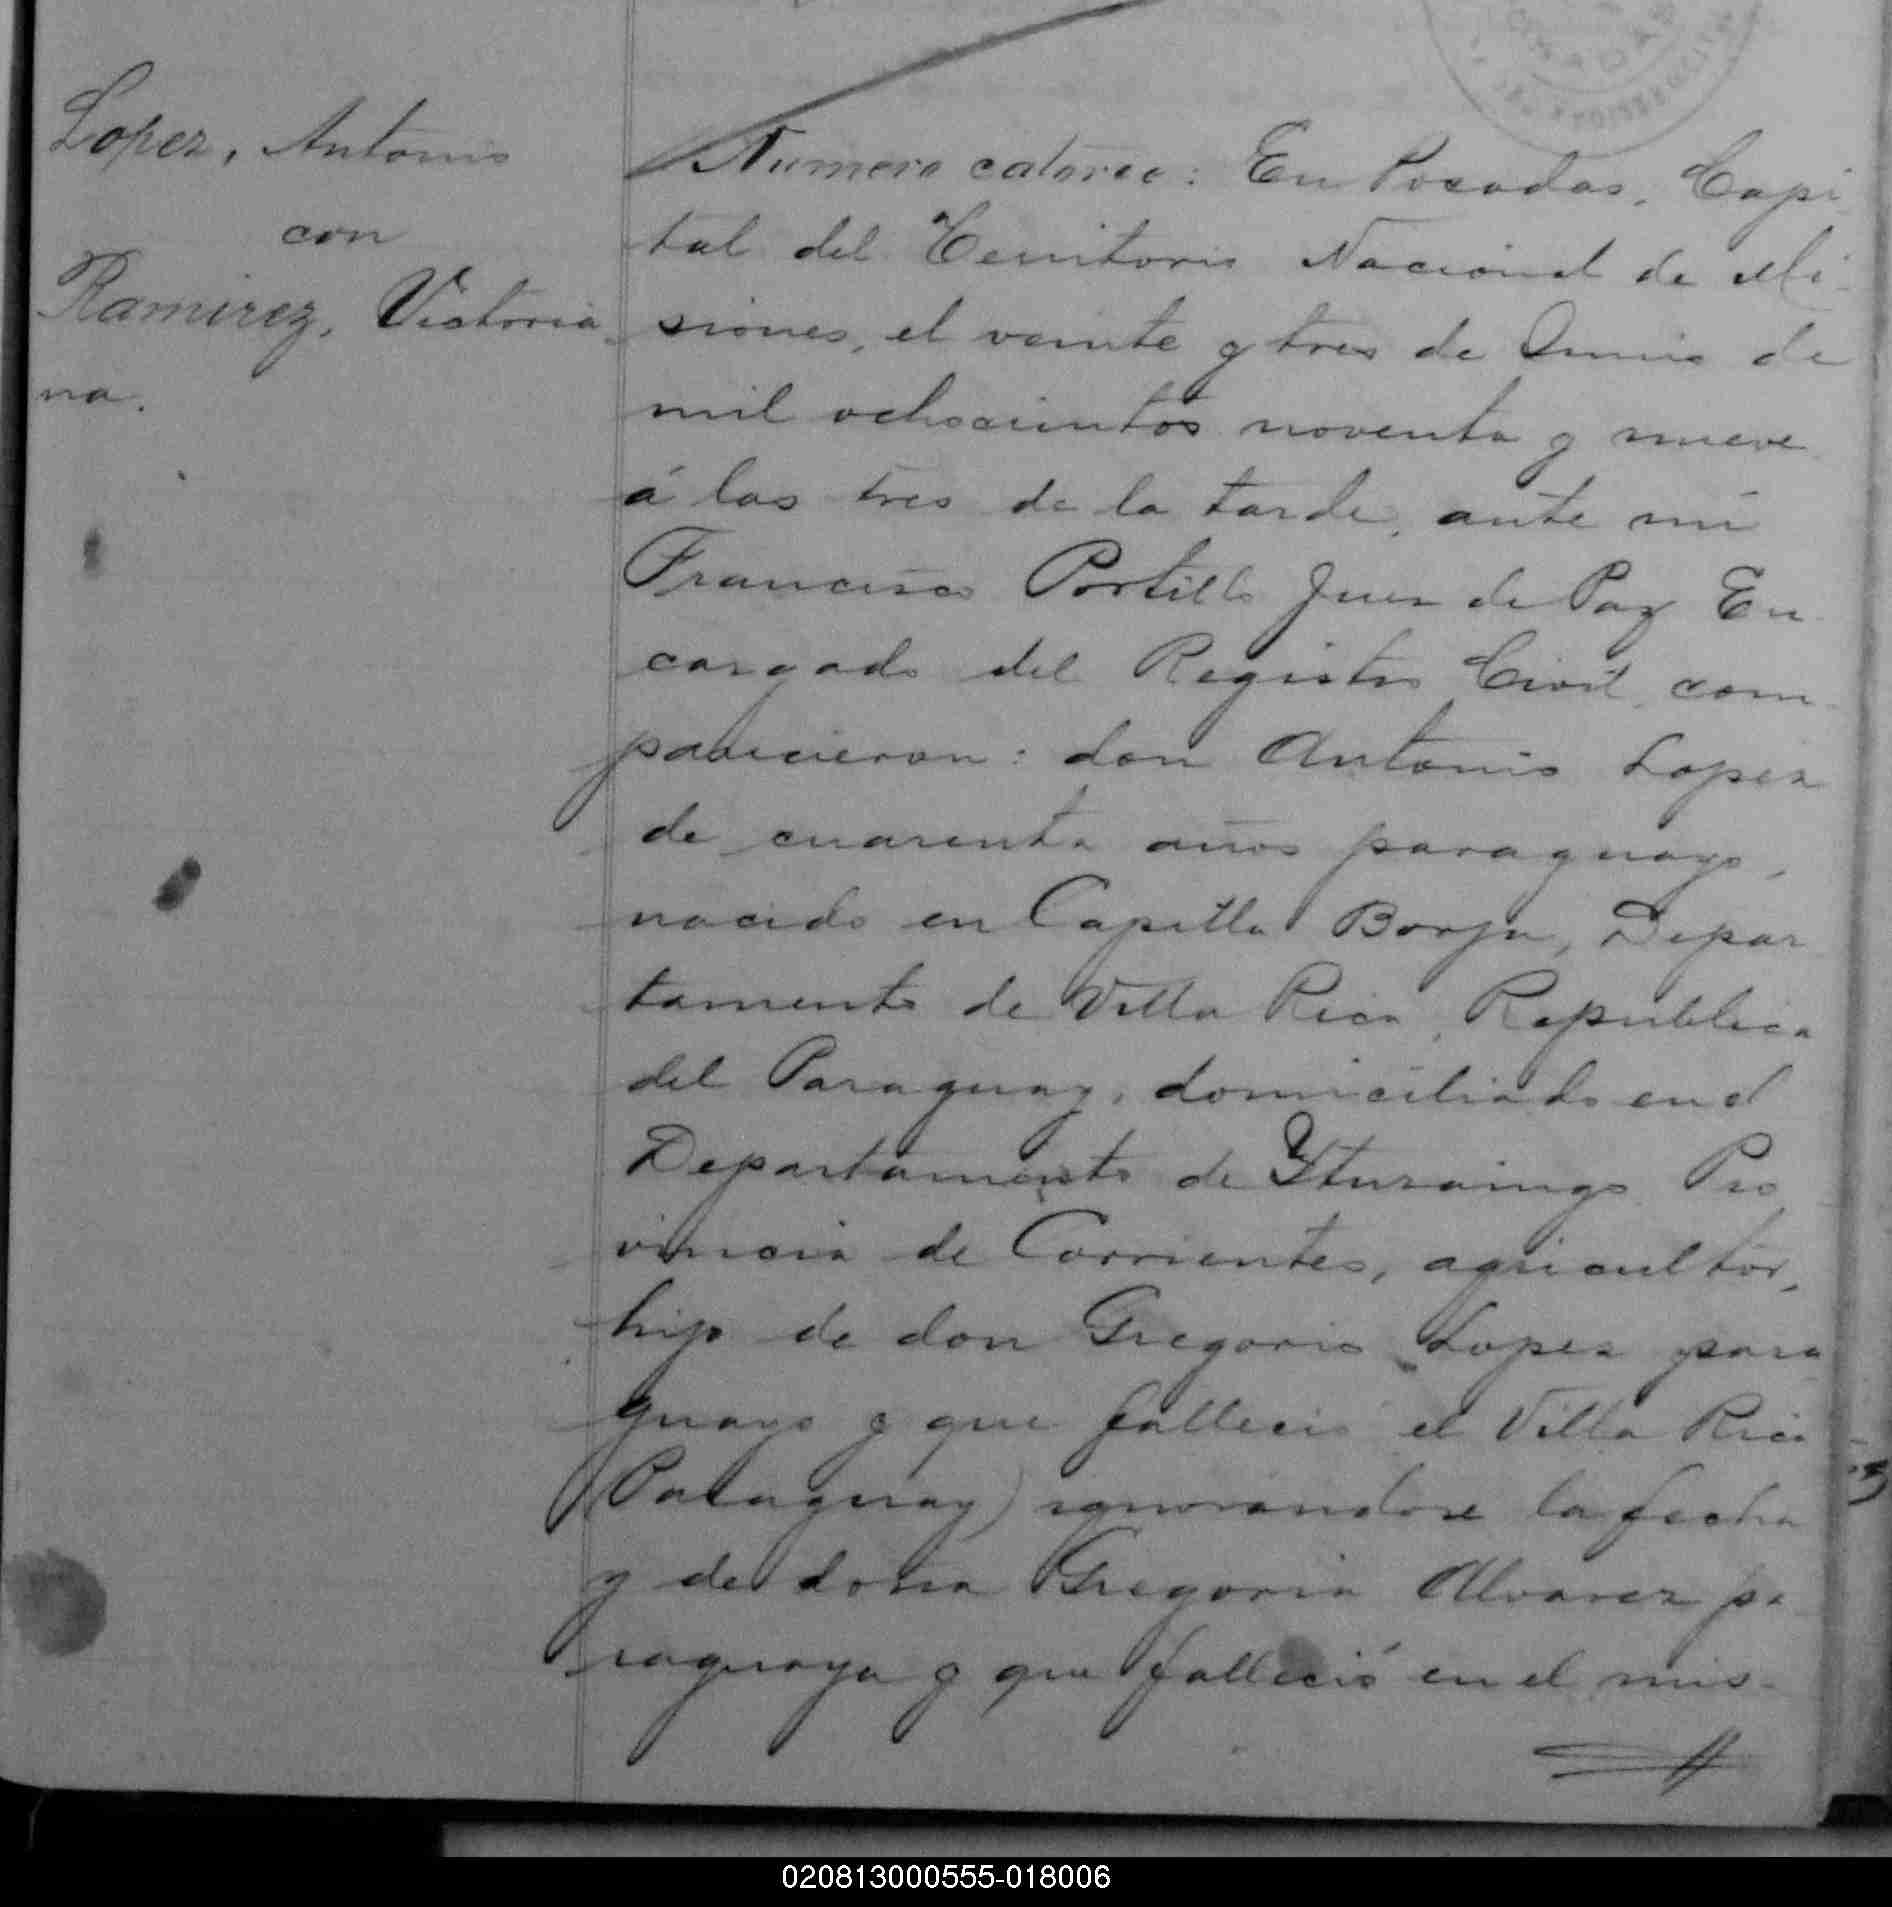 Lopez, Antonio
con
Ramirez, Victoria
na.
Numero catorce: En Posadas, Capi
tal del Territorio Nacional de Mi-
siones, el veinte y tres de Junio de
mil ochocientos noventa y nueve
á las tres de la tarde, ante mi
Francisco Portillo Juez de Paz En
cargado del Registro Civil, com
parecieron: don Antonio Lopez
de cuarenta años paraguayo,
nacido en Capilla Borja, Depar
tamento de Villa Rica, Republica
del Paraguay, domiciliado en el
Departamento de Yturaingo Pro
vincia de Corrientes, agricultor,
hijo de don Gregorio Lopez para
guayo y que falleció el Villa Rica
(Paraguay) ignorandose la fecha
y de doña Gregoria Alvarez pa
raguaya y que falleció en el mis-
020813000555-018006